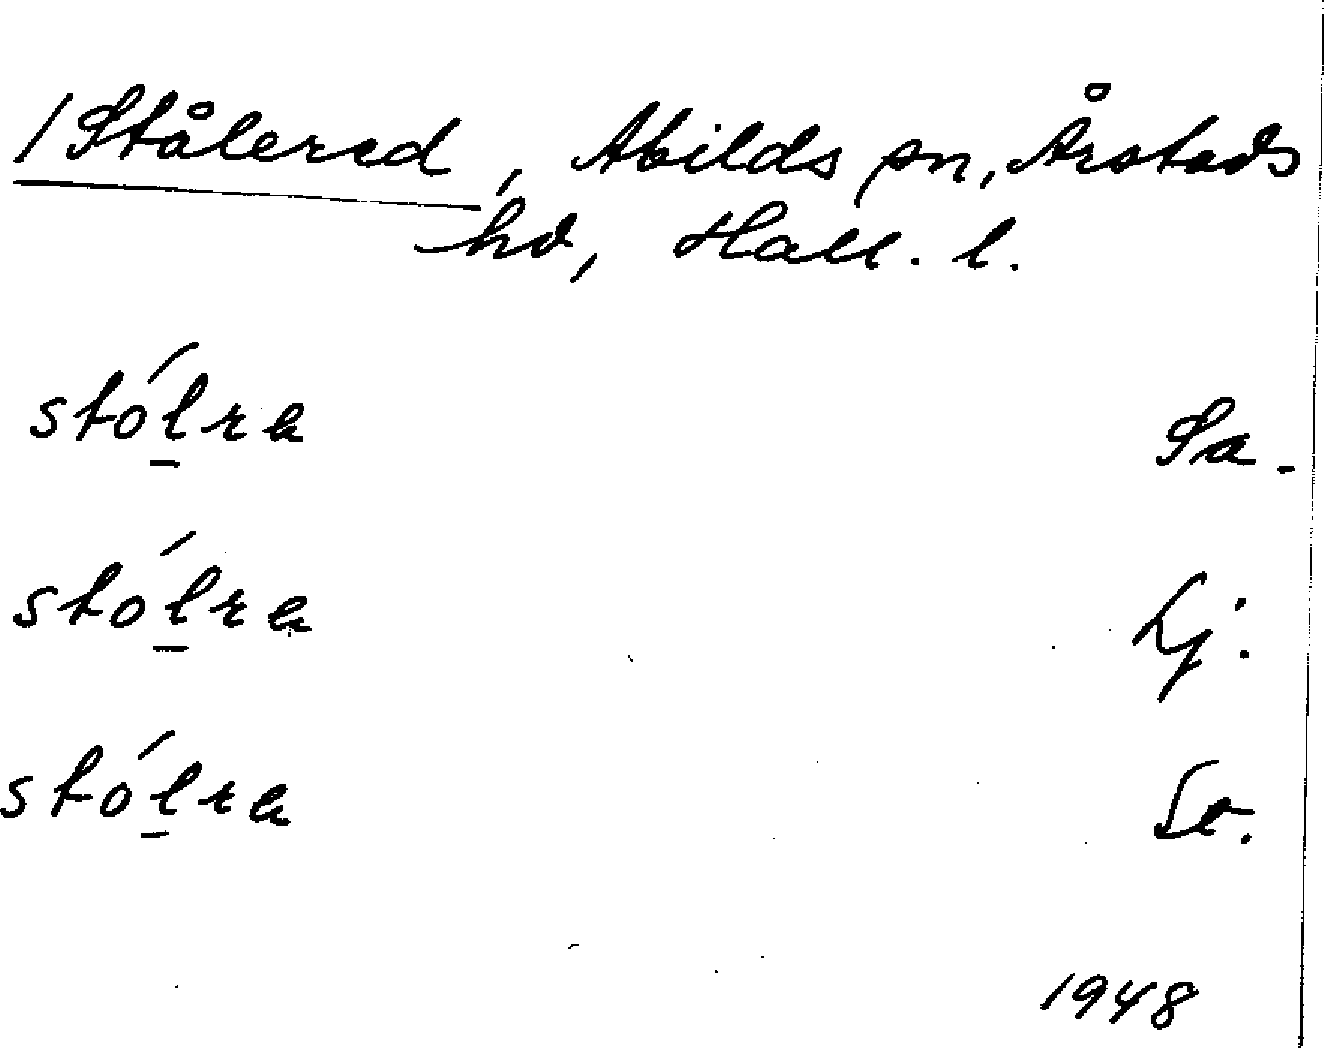 /Stålered, Abilds sn, Årstads
hd, Hall. l.
stó́lra Sa.
stó́lra Lj.
stó́lra Sv.
1948